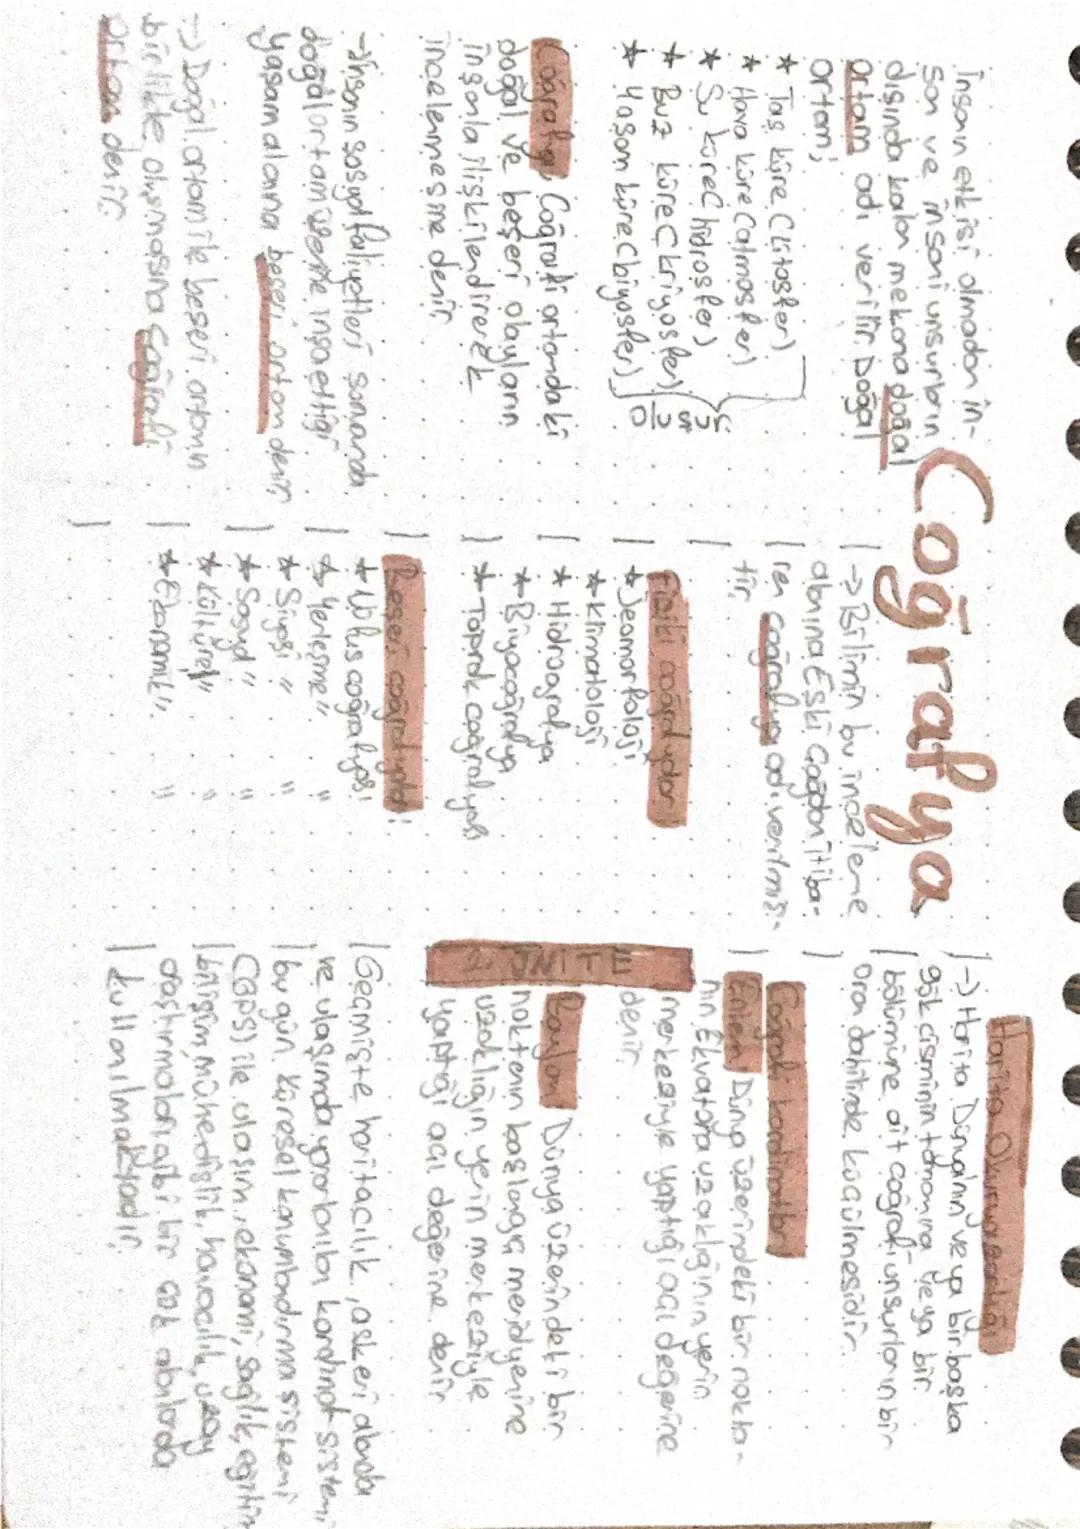 Coğrafya
İnsan etkisi olmadan in-
san ve insani unsurların
dışında kalan mekana doğal
ortam adı verilir. Doğal
ortam;
★ Taş küre (litosfer)
★ Hava küre (atmosfer)
★ Su küre (hidrosfer)
★ Buz küre (kriyosfer)
★ Yaşam küre (biyosfer)
Coğrafya; Coğrafi ortamdaki
doğal ve beşeri olayların
insanla ilişkilendirerek
incelenmesine denir.
→ İnsanın sosyal faliyetleri sonunda
doğal ortam üzerine inşa ettiği
yaşam alanına beşeri ortam denir.
→ Doğal ortam ile beşeri ortamın
birlikte oluşmasına coğrafi
ortam denir.
→ Bilimin bu inceleme
alanına Eski Çağdan itiba-
ren coğrafya adı verilmiş-
tir.
Fiziki coğrafyalar
★ Jeomorfoloji
★ Klimatoloji
★ Hidrografya
★ Biyocoğrafya
★ Toprak coğrafyası
Beşeri coğrafyalar
★ Nüfus coğrafyası
★ Yerleşme " "
★ Siyasi " "
★ Sosyal " "
★ Kültürel " "
★ Ekonomik " "
Harita Okuryazarlığı
→ Harita Dünya'nın veya bir başka
gök cisminin tamamına veya bir
bölümüne ait coğrafi unsurların bir
oran dahilinde küçülmesidir.
Coğrafi kordinatlar
Enlem: Dünya üzerindeki bir nokta-
nın Ekvatora uzaklığının yerin
merkeziyle yaptığı açı değerine
denir.
2. ÜNİTE
Boylam: Dünya üzerindeki bir
noktanın başlangıç meridyenine
uzaklığın yerin merkeziyle
yaptığı açı değerine denir.
Geçmişte haritacılık, askeri alanda
ve ulaşımda yararlanılan kordinat sistemi
bu gün Küresel konumlandırma sistemi
(GPS) ile ulaşım, ekonomi, sağlık, eğitim
bilişim, mühendislik, havacılık, uzay
araştırmaları gibi bir çok alanlarda
kullanılmaktadır.